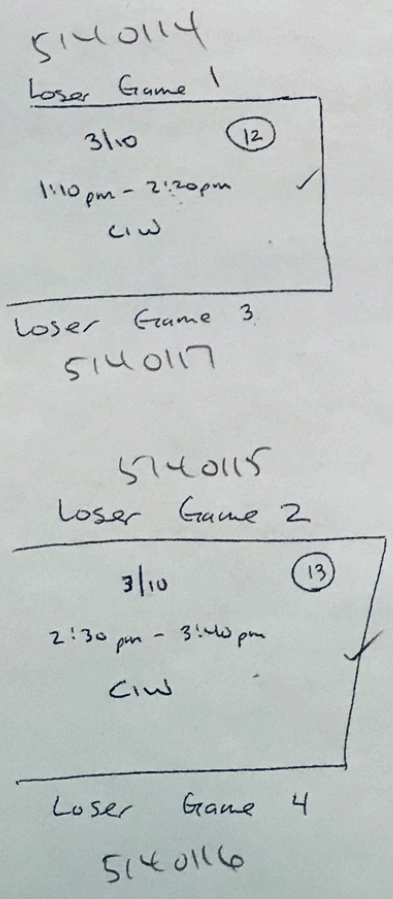 5140114
Loser Game 1
3/10 12
1:10 pm - 2:20 pm
CIW
Loser Game 3
5140117
5140115
Loser Game 2
3/10 13
2:30 pm - 3:40 pm
CIW
Loser Game 4
5140116